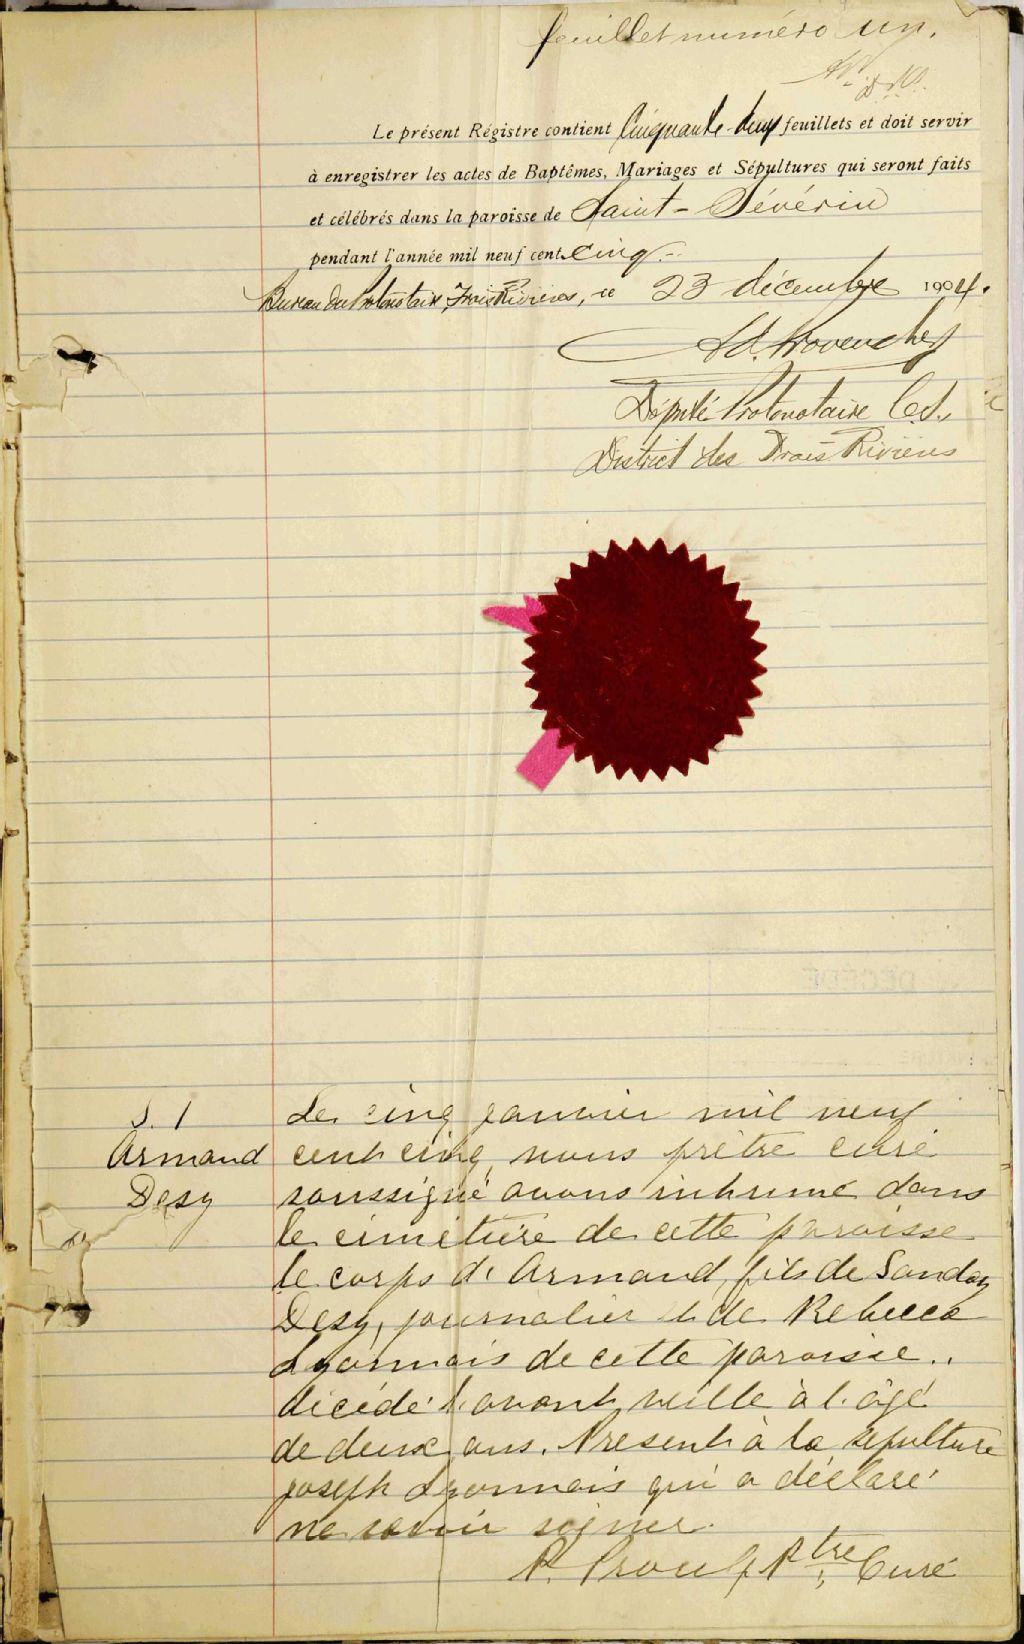 feuillet numéro un.
Le présent Régistre contient Cinquante-deux feuillets et doit servir
à enregistrer les actes de Baptêmes, Mariages et Sépultures qui seront faits
et célébrés dans la paroisse de Saint-Sévérin
pendant l'année mil neuf cent cinq.-
Bureau du Protonotaire, Trois Rivières, ce 23 décembre 1904.
Ad. Provencher
Député Protonotaire C.S.,
District des Trois-Rivières
S. 1
Armand
Desy
Le cinq janvier mil neuf
cent cinq, nous prêtre curé
soussigné avons inhumé dans
le cimetière de cette paroisse
le corps d'Armand, fils de
Desy, journalier et de Rebecca
Lyonnais de cette paroisse.,
décédé l'avant veille à l'âge
de deux ans. Présent à la sépulture
Joseph Lyonnais qui a déclaré
ne savoir signer.
P. Proulx Ptre, Curé